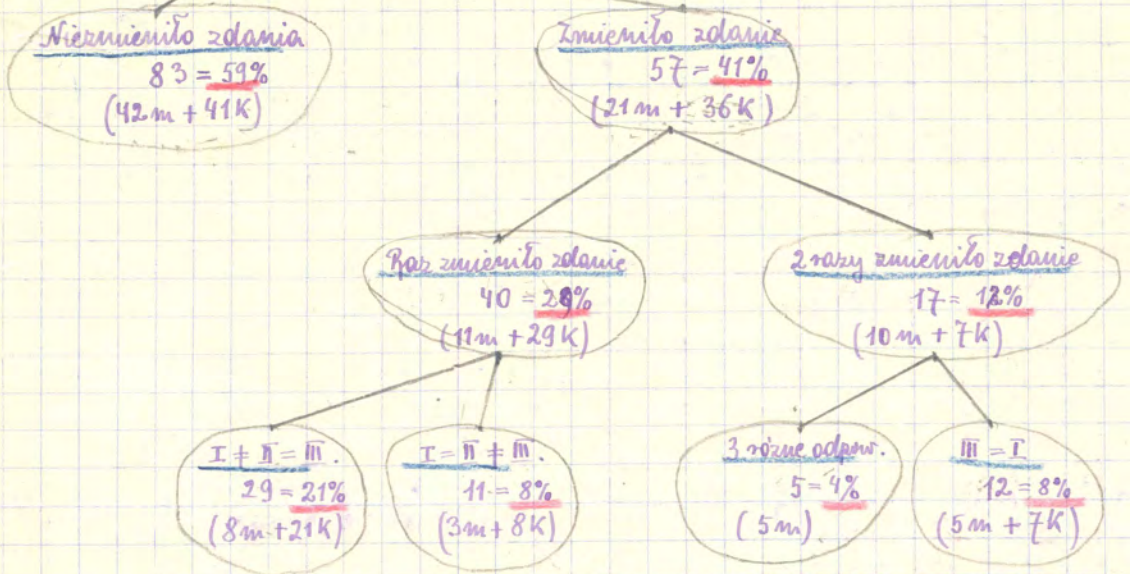 Niezmieniło zdania
83 = 59%
(42 m + 41 K)
Zmieniło zdanie
57 = 41%
(21 m + 36 K)
Raz zmieniło zdanie
40 = 29%
(11 m + 29 K)
2 razy zmieniło zdanie
17 = 12%
(10 m + 7 K)
I ≠ II = III.
29 = 21%
(8 m + 21 K)
I = II ≠ III.
11 = 8%
(3 m + 8 K)
3 różne odpow.
5 = 4%
(5 m)
III = I
12 = 8%
(5 m + 7 K)